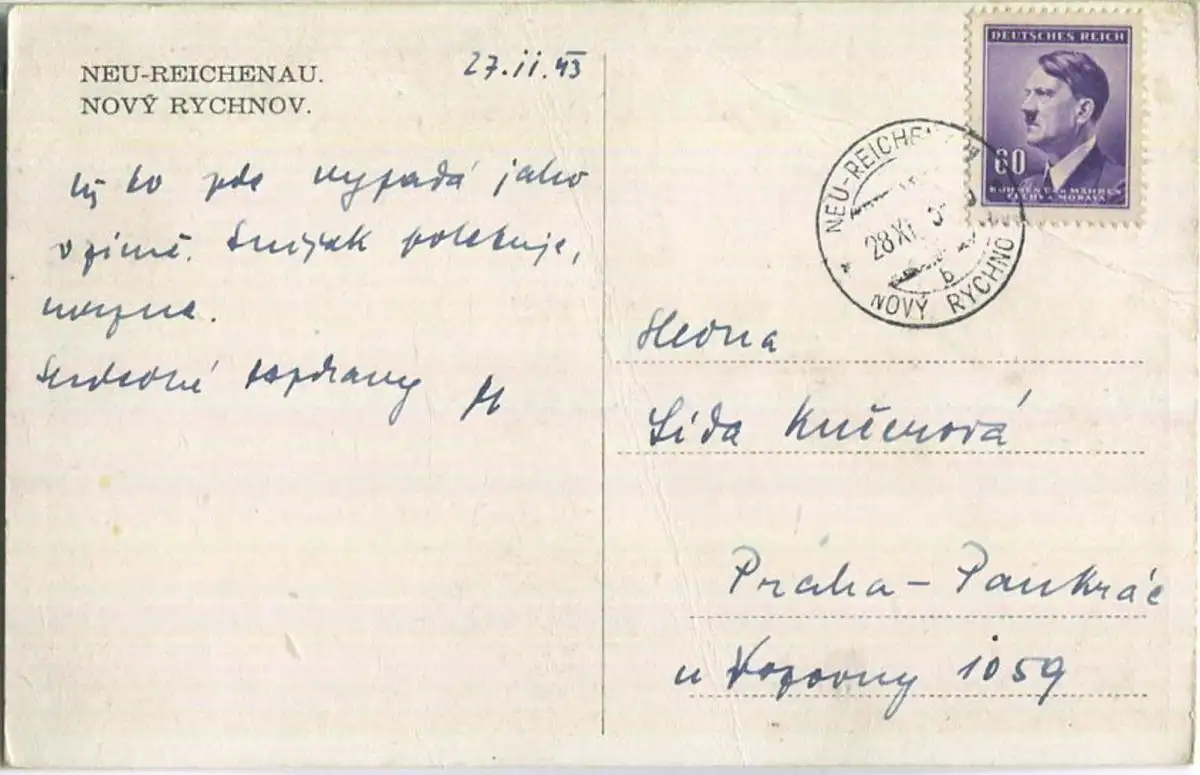 NEU-REICHENAU.
NOVÝ RYCHNOV.
27.ii.43
to zde vypadá jako
v zimě. poletuje,
mrzne.
Srdečné pozdravy
DEUTSCHES REICH
60
BÖHMEN U. MÄHREN
ČECHY A MORAVA
NEU-REICHEN
28 XI
b
NOVÝ RYCHNO
Slečna
Lída Kučerová
Praha - Pankrác
u Vozovny 1059